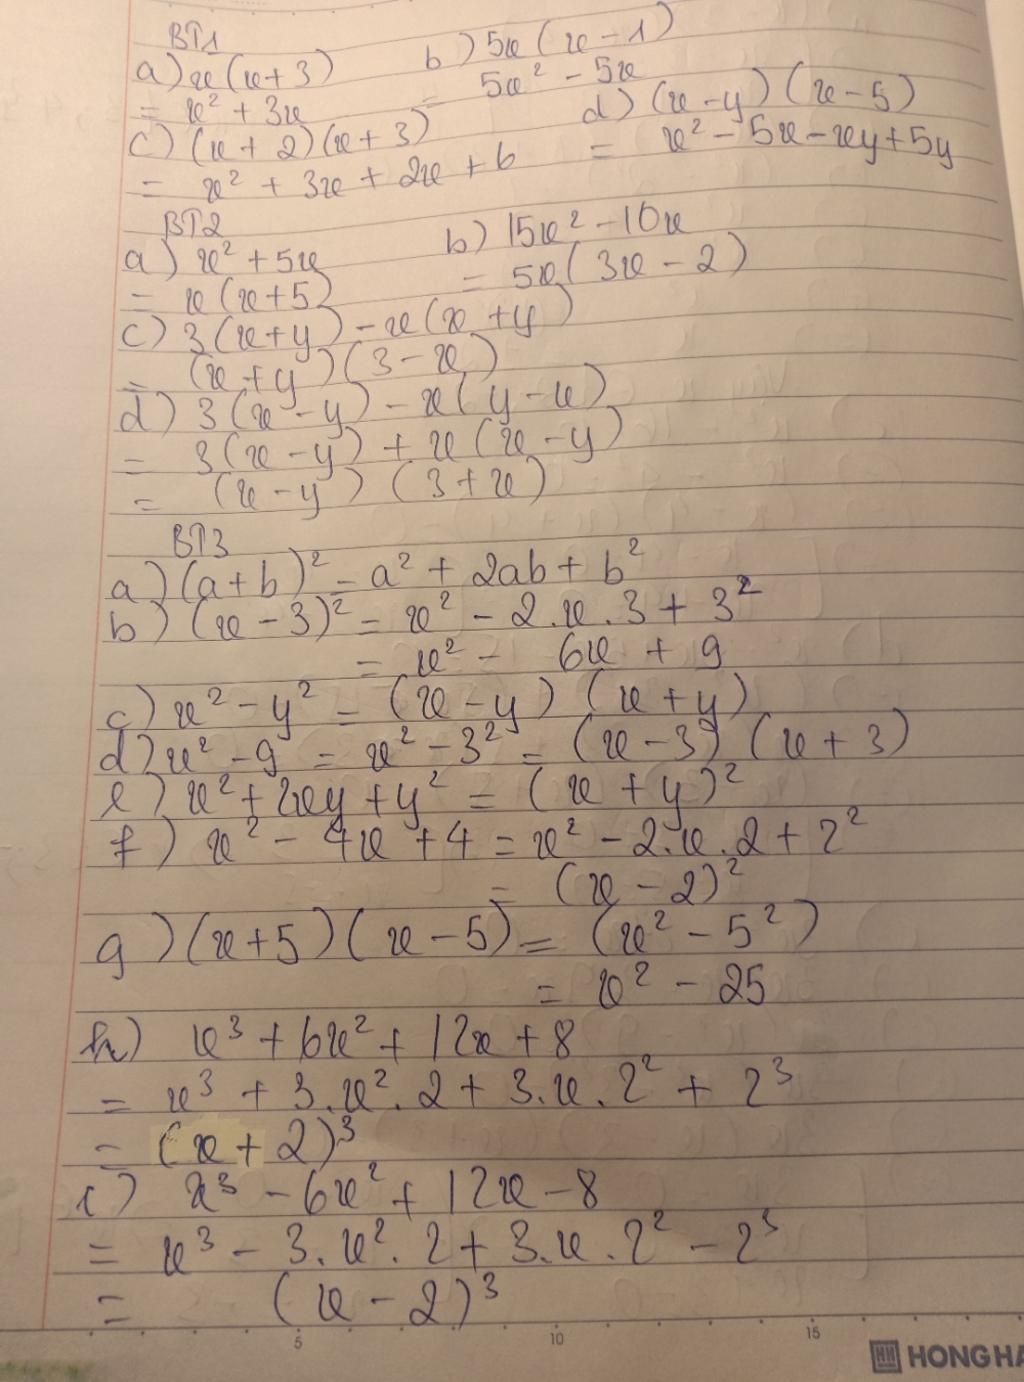 BT1
a) x(x+3)   b) 5x(x-1)
= x² + 3x   = 5x² - 5x
c) (x+2)(x+3)   d) (x-y)(x-5)
= x² + 3x + 2x + 6   = x² - 5x - xy + 5y
BT2
a) x² + 5x   b) 15x² - 10x
= x(x+5)   = 5x(3x-2)
c) 3(x+y) - x(x+y)
= (x+y)(3-x)
d) 3(x-y) - x(y-x)
= 3(x-y) + x(x-y)
= (x-y)(3+x)
BT3
a) (a+b)² = a² + 2ab + b²
b) (x-3)² = x² - 2.x.3 + 3²
= x² - 6x + 9
c) x² - y² = (x-y)(x+y)
d) x² - 9 = x² - 3² = (x-3)(x+3)
e) x² + 2xy + y² = (x+y)²
f) x² - 4x + 4 = x² - 2.x.2 + 2²
= (x-2)²
g) (x+5)(x-5) = (x² - 5²)
= x² - 25
h) x³ + 6x² + 12x + 8
= x³ + 3.x².2 + 3.x.2² + 2³
= (x+2)³
i) x³ - 6x² + 12x - 8
= x³ - 3.x².2 + 3.x.2² - 2³
= (x-2)³
5 10 15
HONG HA